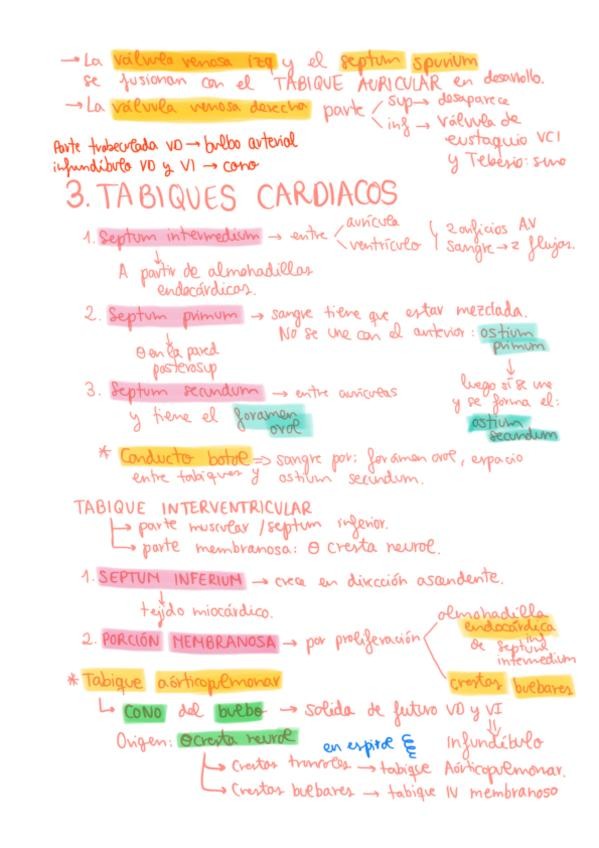 → La válvula venosa izq y el septum spurium
se fusionan con el TABIQUE AURICULAR en desarrollo.
→ La válvula venosa derecha parte sup → desaparece
inf → válvula de
eustaquio VCI
y Tebesio: sino
Parte trabeculada VD → bulbo arterial
infundíbulo VD y VI → cono
3. TABIQUES CARDIACOS
1. Septum intermedium → entre aurícula
ventrículo
2 orificios AV
sangre → 2 flujos.
↓
A partir de almohadillas
endocárdicas.
2. Septum primum → sangre tiene que estar mezclada.
No se une con el anterior: ostium
primum
↓
θ en la pared
posterosup
↓
luego sí se une
y se forma el:
ostium
secundum
3. Septum secundum → entre aurículas
y tiene el foramen
oval
* Conducto botal ⇒ sangre por: forámen oval, espacio
entre tabiques y ostium secundum.
TABIQUE INTERVENTRICULAR
↳ parte muscular / septum inferior.
↳ parte membranosa: θ cresta neural.
1. SEPTUM INFERIUM → crece en dirección ascendente.
↓
tejido miocárdico.
2. PORCIÓN MEMBRANOSA → por proliferación
almohadilla
endocárdica
inf
de septum
intermedium
crestas bulbares
* Tabique aórticopulmonar
↳ CONO del bulbo → salida de futuro VD y VI
⇓
Infundíbulo
Origen: θ cresta neural en espiral
↳ Crestas truncales → tabique Aórticopulmonar.
↳ Crestas bulbares → tabique IV membranoso